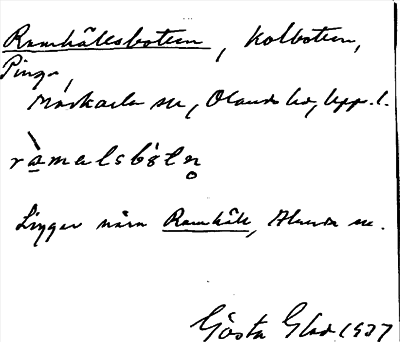 Ramhällsbotten, Kolbotten,
Pinga,
Morkarla sn, Olands hd, Uppl.
ràmalsbòtn̥
Ligger nära Ramhäll, Alunda sn.
Gösta Glad 1937